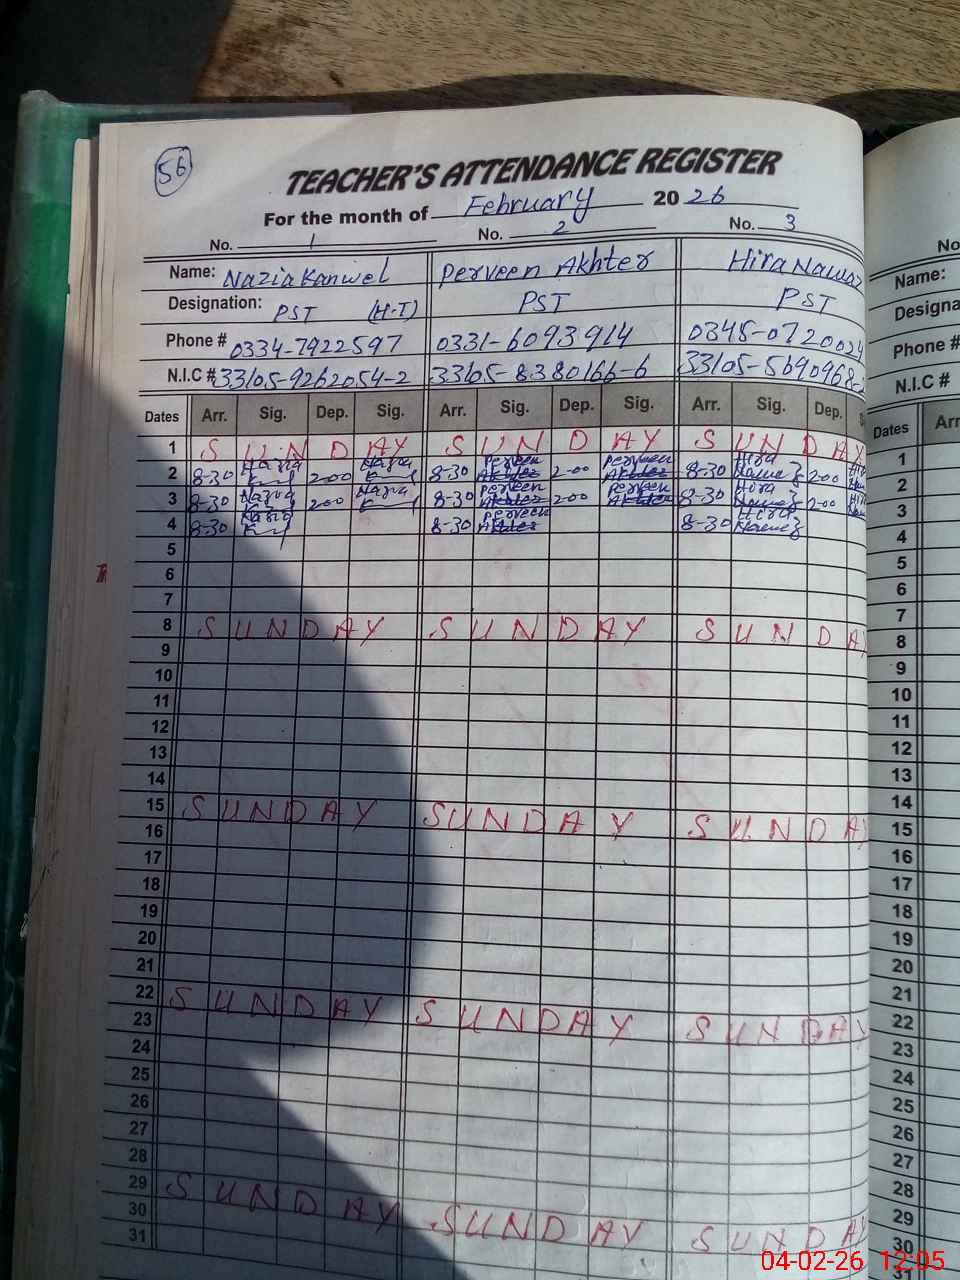 56
TEACHER'S ATTENDANCE REGISTER
For the month of February 20 26
No. 1 No. 2 No. 3
Name: Nazia Kanwel Perveen Akhter Hira Nawaz
Designation: PST (H-T) PST PST
Phone # 0334-7922597 0331-6093914 0345-0720024
N.I.C # 33105-9262054-2 33105-8380166-6 33105-5690968-
Dates Arr. Sig. Dep. Sig. Arr. Sig. Dep. Sig. Arr. Sig. Dep. S
1 SUNDAY SUNDAY SUNDAY
2 8-30 Nazia 2-00 Nazia 8-30 Perveen Akhter 2-00 Perveen Akhter 8-30 Hira Nawaz 2-00
3 8-30 Nazia 2-00 Nazia 8-30 Perveen Akhter 2-00 Perveen Akhter 8-30 Hira Nawaz 2-00
4 8-30 Nazia 8-30 Perveen Akhter 8-30 Hira Nawaz
5
6
7
8 SUNDAY SUNDAY SUNDA
9
10
11
12
13
14
15 SUNDAY SUNDAY SUNDA
16
17
18
19
20
21
22 SUNDAY SUNDAY SUNDAY
23
24
25
26
27
28
29 SUNDAY SUNDAY SUNDAY
30
31
No
Name:
Designa
Phone #
N.I.C #
Dates Arr
1
2
3
4
5
6
7
8
9
10
11
12
13
14
15
16
17
18
19
20
21
22
23
24
25
26
27
28
29
30
31
04-02-26 12:05